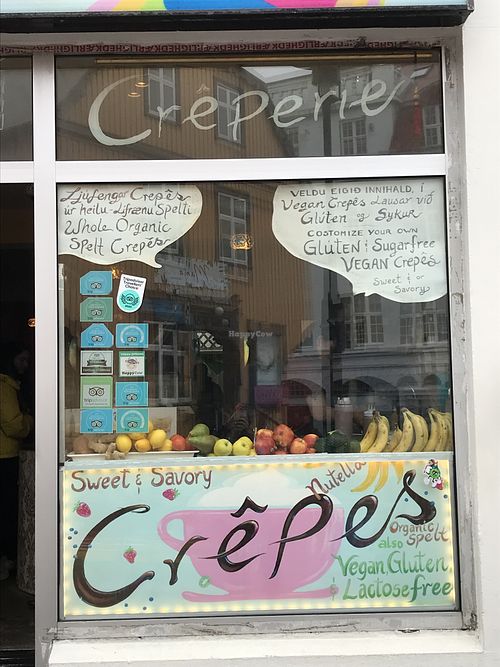 Crêperie
Ljúfengar Crepês
úr heilu-Lífrænu Spelti
Whole Organic
Spelt Crepês
VELDU EIGIÐ INNIHALD, Í
Vegan Crepês Lausar við
Glúten og Sykur
COSTOMIZE YOUR OWN
Glúten & Sugarfree
VEGAN Crepês
Sweet & or
Savory
HappyCow
HappyCow
Sweet & Savory
Nutella
Crêpes
Organic
Spelt
also
Vegan Gluten
& Lactose free